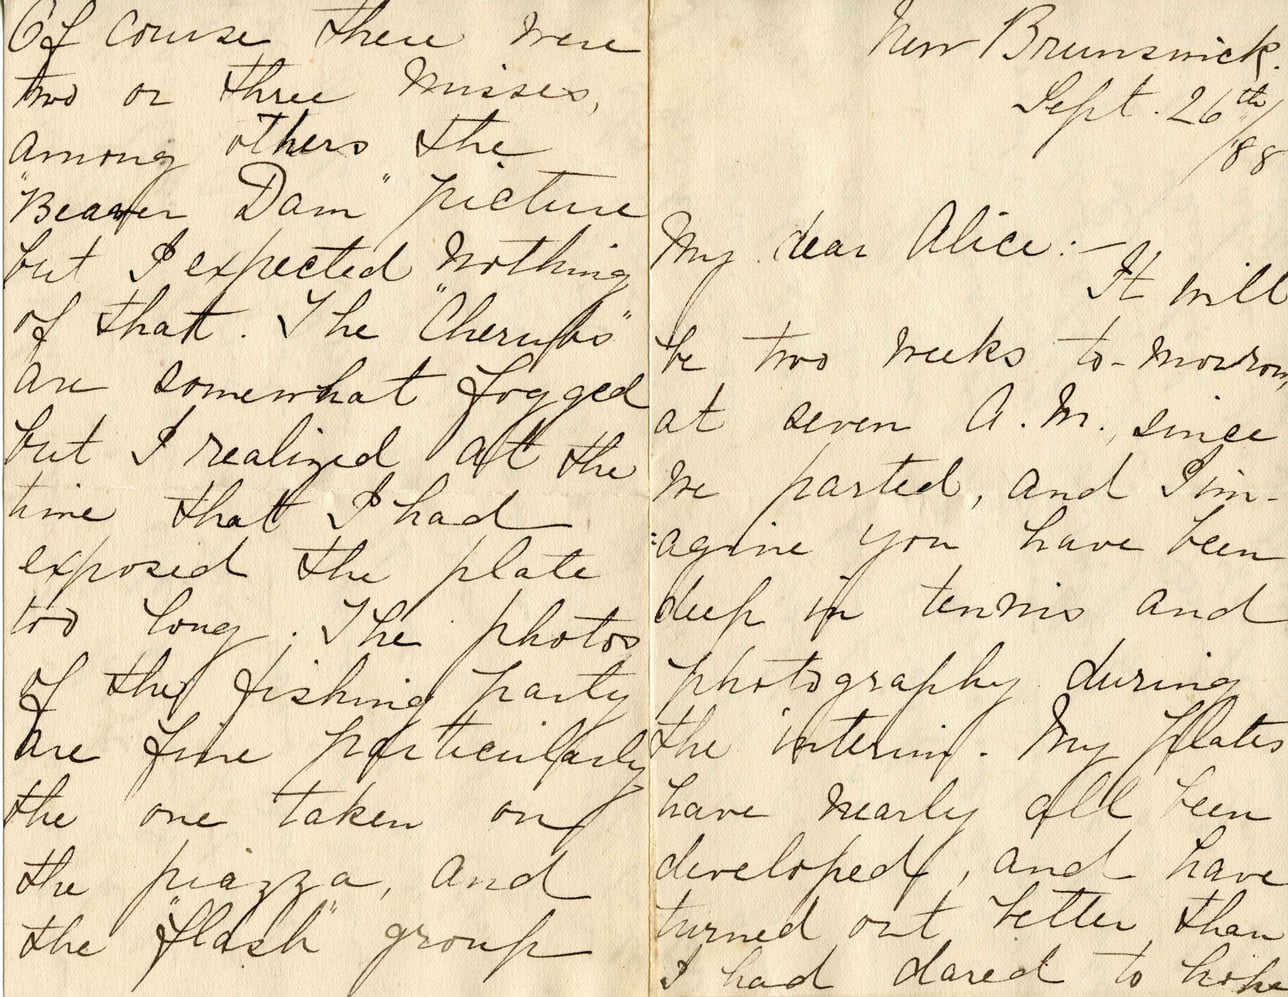 New Brunswick.
Sept. 26th/
/88
My dear Alice:—
It will
be two weeks to-morrow,
at seven A.M., since
we parted, and I im-
:agine you have been
deep in tennis and
photography during
the interim. My plates
have nearly all been
developed, and have
turned out better than
I had dared to hope
Of course there were
two or three misses,
among others the
"Beaver Dam" picture
but I expected nothing
of that. The "Cherubs"
are somewhat fogged
but I realized at the
time that I had
exposed the plate
too long. The photos
of the fishing party
are fine particularly
the one taken on
the piazza, and
the "flash" group